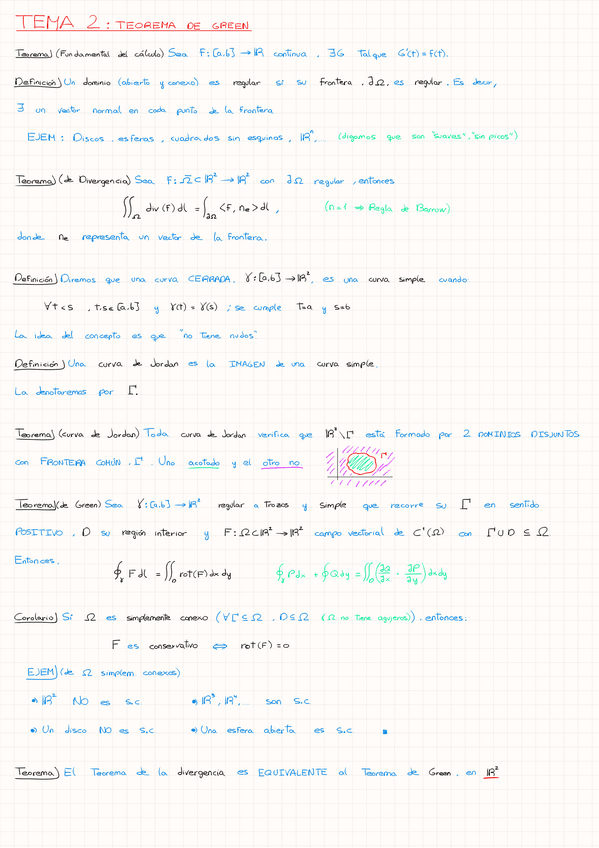 TEMA 2: TEOREMA DE GREEN
Teorema) (Fundamental del cálculo) Sea F: [a,b] → ℝ continua, ∃G tal que G'(t) = f(t).
Definición) Un dominio (abierto y conexo) es regular si su frontera, ∂Ω, es regular. Es decir,
∃ un vector normal en cada punto de la frontera
EJEM: Discos, esferas, cuadrados sin esquinas, ℝⁿ,... (digamos que son "suaves", "sin picos")
Teorema) (de Divergencia) Sea F: Ω̄ ⊂ ℝ² → ℝ² con ∂Ω regular, entonces
∬_Ω div(F) dl = ∫_∂Ω <F, n_e> dl, (n=1 ⇒ Regla de Barrow)
donde n_e representa un vector de la frontera.
Definición) Diremos que una curva CERRADA, γ: [a,b] → ℝ², es una curva simple cuando:
∀t < s, t,s ∈ [a,b] y γ(t) = γ(s); se cumple t=a y s=b
La idea del concepto es que "no tiene nudos"
Definición) Una curva de Jordan es la IMAGEN de una curva simple.
La denotaremos por Γ.
Teorema) (curva de Jordan) Toda curva de Jordan verifica que ℝ²\Γ está formado por 2 DOMINIOS DISJUNTOS
con FRONTERA COMÚN, Γ. Uno acotado y el otro no. Γ
Teorema) (de Green) Sea γ: [a,b] → ℝ² regular a trozos y simple que recorre su Γ en sentido
POSITIVO, D su región interior y F: Ω ⊂ ℝ² → ℝ² campo vectorial de C¹(Ω) con Γ∪D ⊆ Ω
Entonces,
∮_γ F dl = ∬_D rot(F) dx dy ∮_γ Pdx + ∮Qdy = ∬_D (∂Q/∂x - ∂P/∂y) dxdy
Corolario) Si Ω es simplemente conexo (∀Γ ⊆ Ω, D ⊆ Ω (Ω no tiene agujeros)), entonces:
F es conservativo ⇔ rot(F) = 0
EJEM) (de Ω simplem. conexos)
•) ℝ² NO es s.c •) ℝ³, ℝ⁴,... son s.c
•) Un disco NO es s.c •) Una esfera abierta es s.c ■
Teorema) El Teorema de la divergencia es EQUIVALENTE al Teorema de Green, en ℝ²